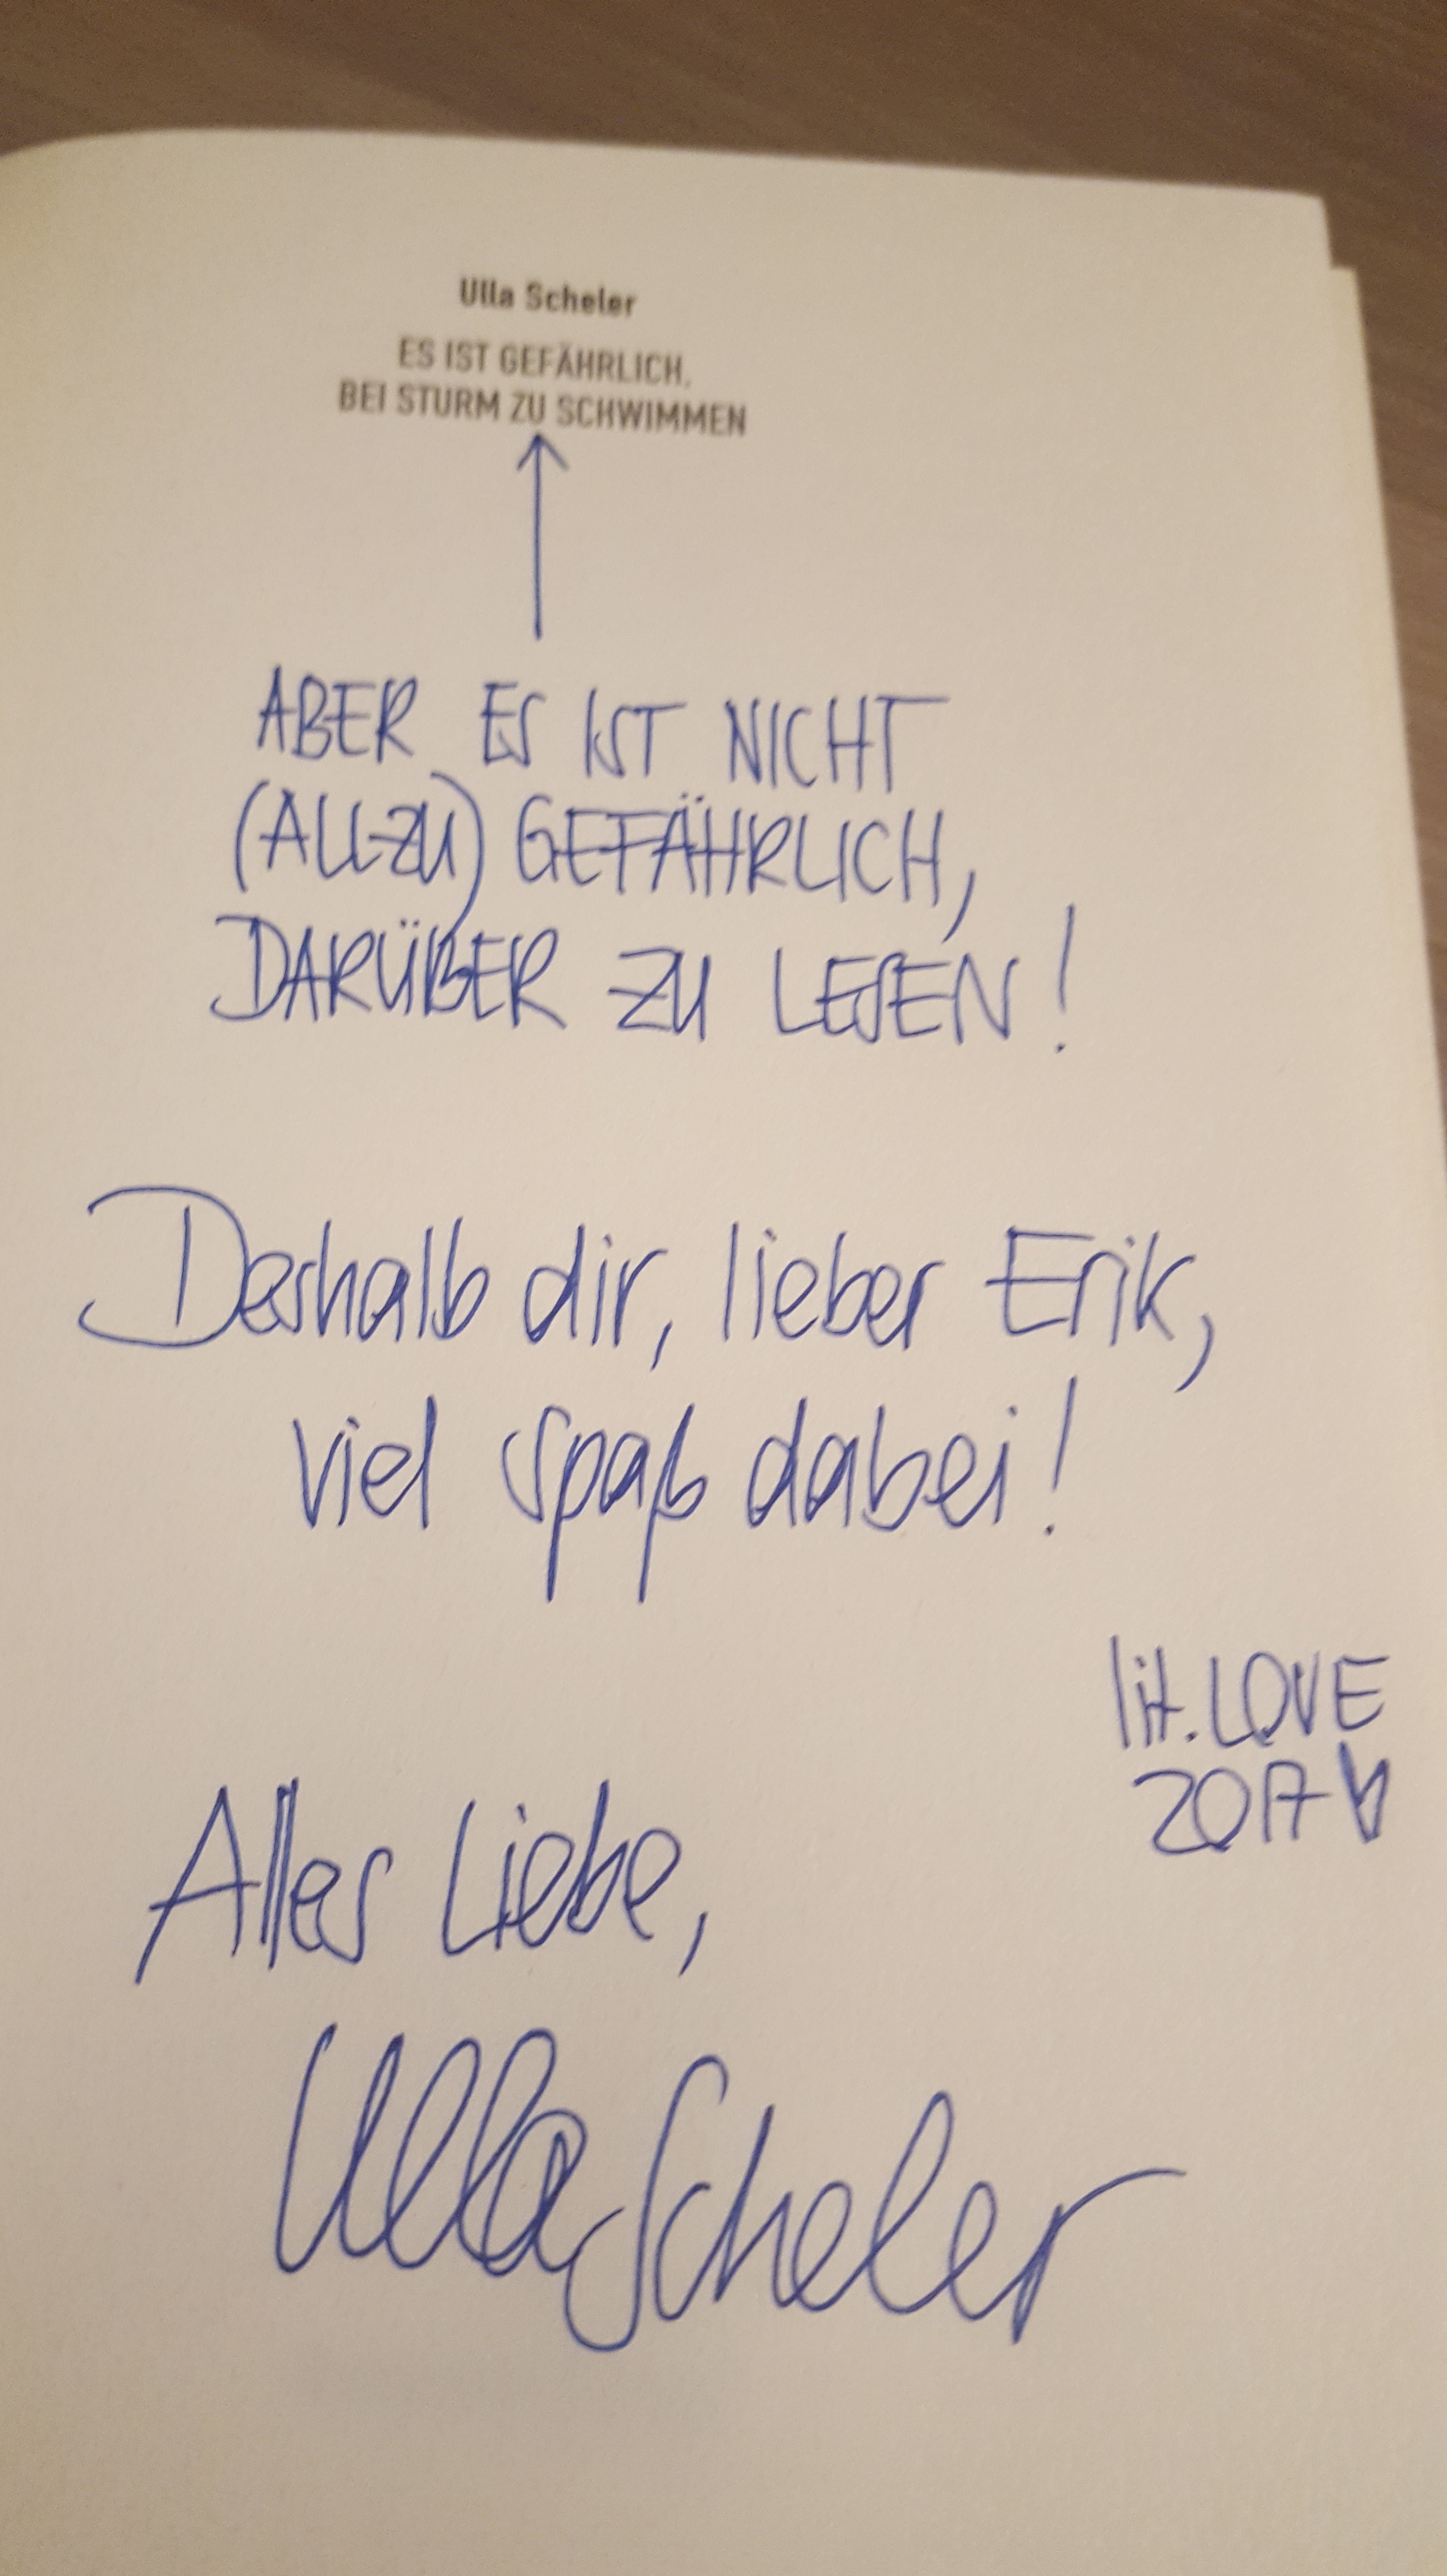 Ulla Scheler
ES IST GEFÄHRLICH,
BEI STURM ZU SCHWIMMEN
ABER ES IST NICHT
(ALLZU) GEFÄHRLICH,
DARÜBER ZU LESEN!
Deshalb dir, lieber Erik,
viel Spaß dabei!
lit.LOVE
2017
Alles Liebe,
Ulla Scheler